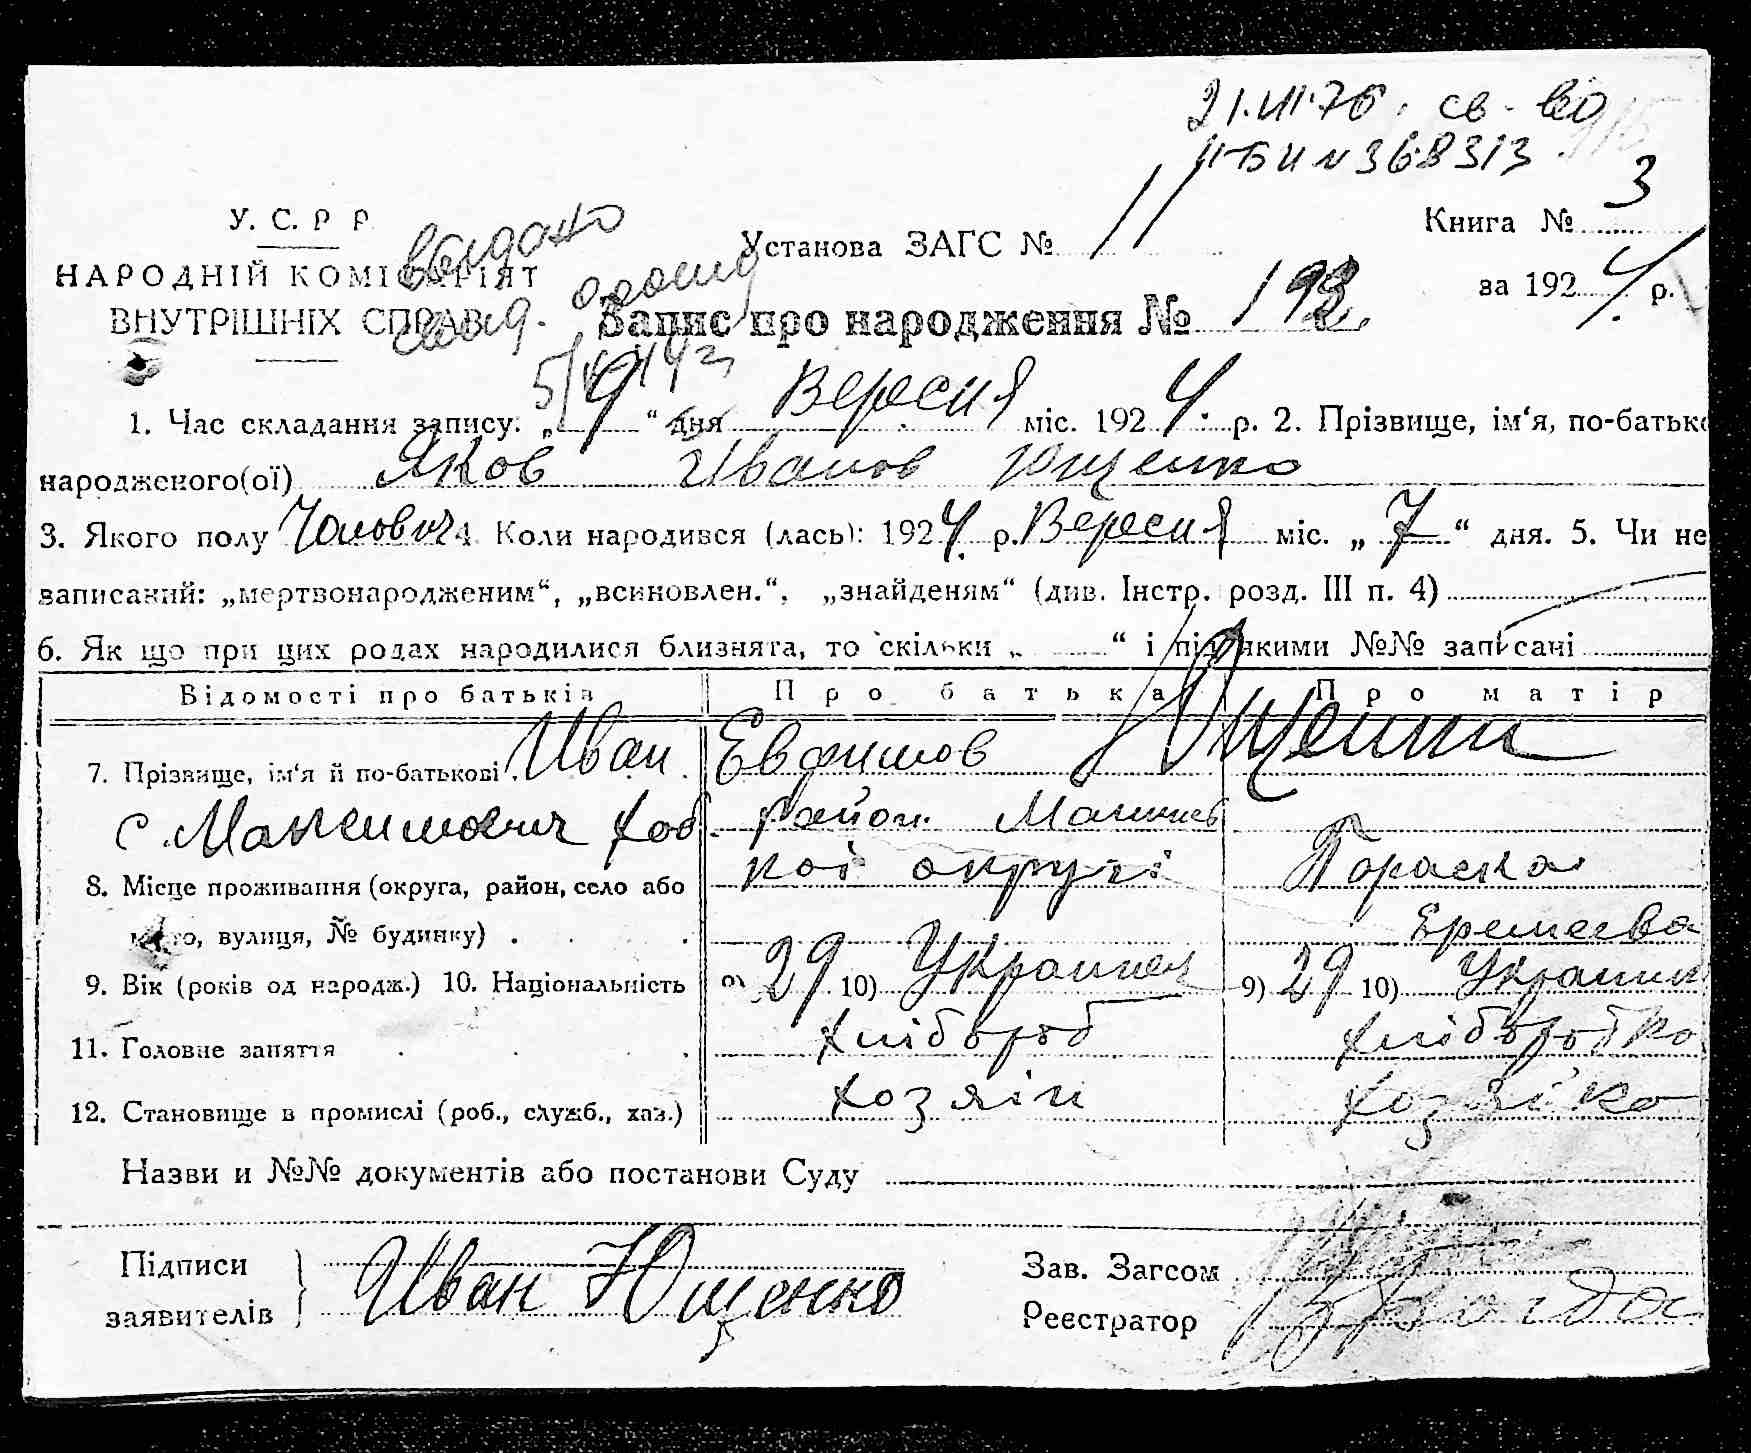 21.VII.76. св-во
II-БИ № 368313
У. С. Р Р.
видано
Установа ЗАГС № 11
Книга № 3
НАРОДНІЙ КОМІСАРІЯТ
за 1924 р.
ВНУТРІШНІХ СПРАВ
Запис про народження №
1. Час складання запису: „9“ дня Вересня міс. 1924 р. 2. Прізвище, ім‘я, по-батьк
народженого(ої) Яков Иванов Ющенко
3. Якого полу Чоловіч 4. Коли народився (лась): 1924 р. Вересня міс. „7“ дня. 5. Чи не
записаний: „мертвонародженим“, „всиновлен.“, „знайденям“ (див. Інстр. розд. III п. 4)
6. Як що при цих родах народилися близнята, то скільки „ “ і під якими №№ записані
Відомості про батьків Про батька Про матір
7. Прізвище, ім‘я й по-батькові Иван Евфимов Ющенко
с. Максимович Хоб район
8. Місце проживання (округа, район, село або кої округи Параска
місто, вулиця, № будинку) . Еремеева
9. Вік (років од народж.) 10. Національність 9) 29 10) Украинец 9) 29 10) Украин
11. Головне заняття хлібороб хліборобка
12. Становище в промислі (роб., служб., хаз.) хозяін хозяйка
Назви и №№ документів або постанови Суду
Підписи
заявителів
Иван Ющенко
Зав. Загсом
Реєстратор